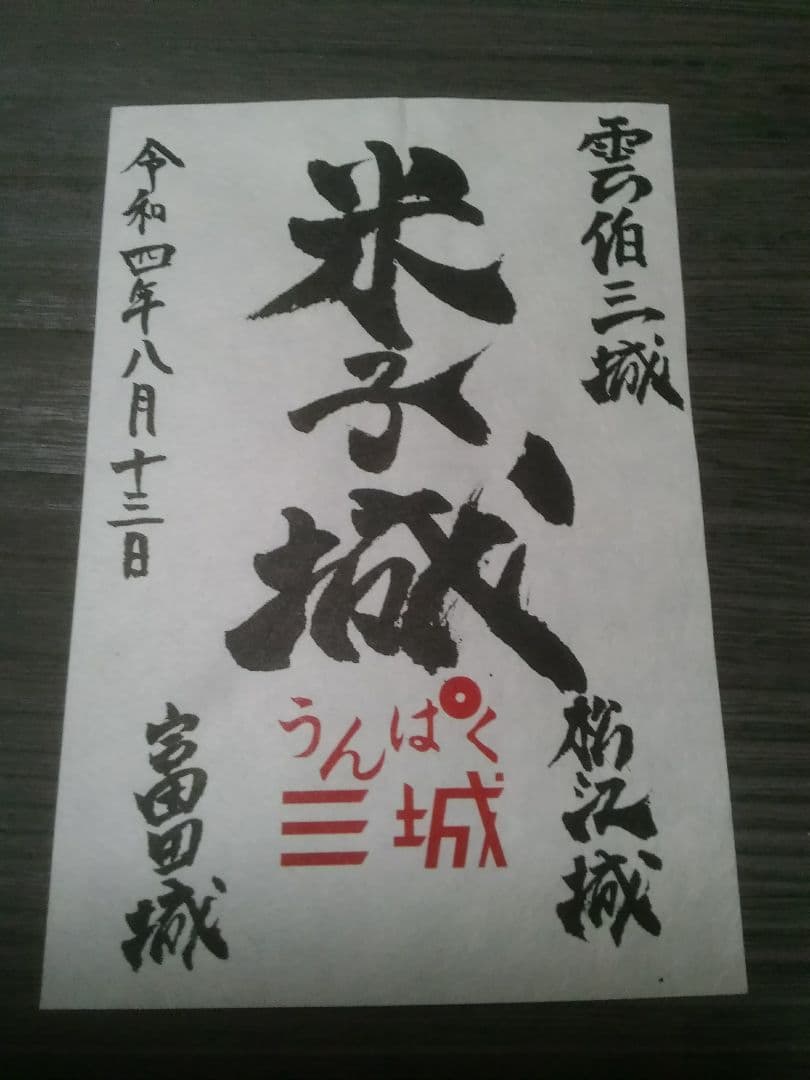 雲伯三城
米子城
令和四年八月十三日
うんぱく
三城
松江城
富田城